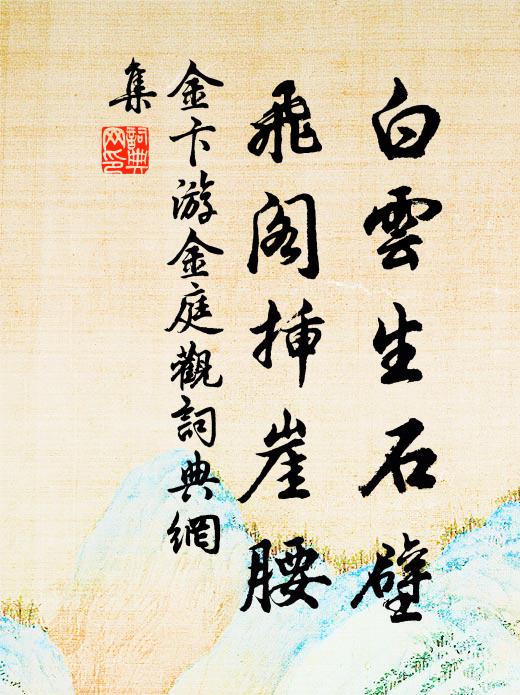 白雲生石壁
飛閣挿崖腰
金卞游金庭觀詞典網
集
詞典
网印